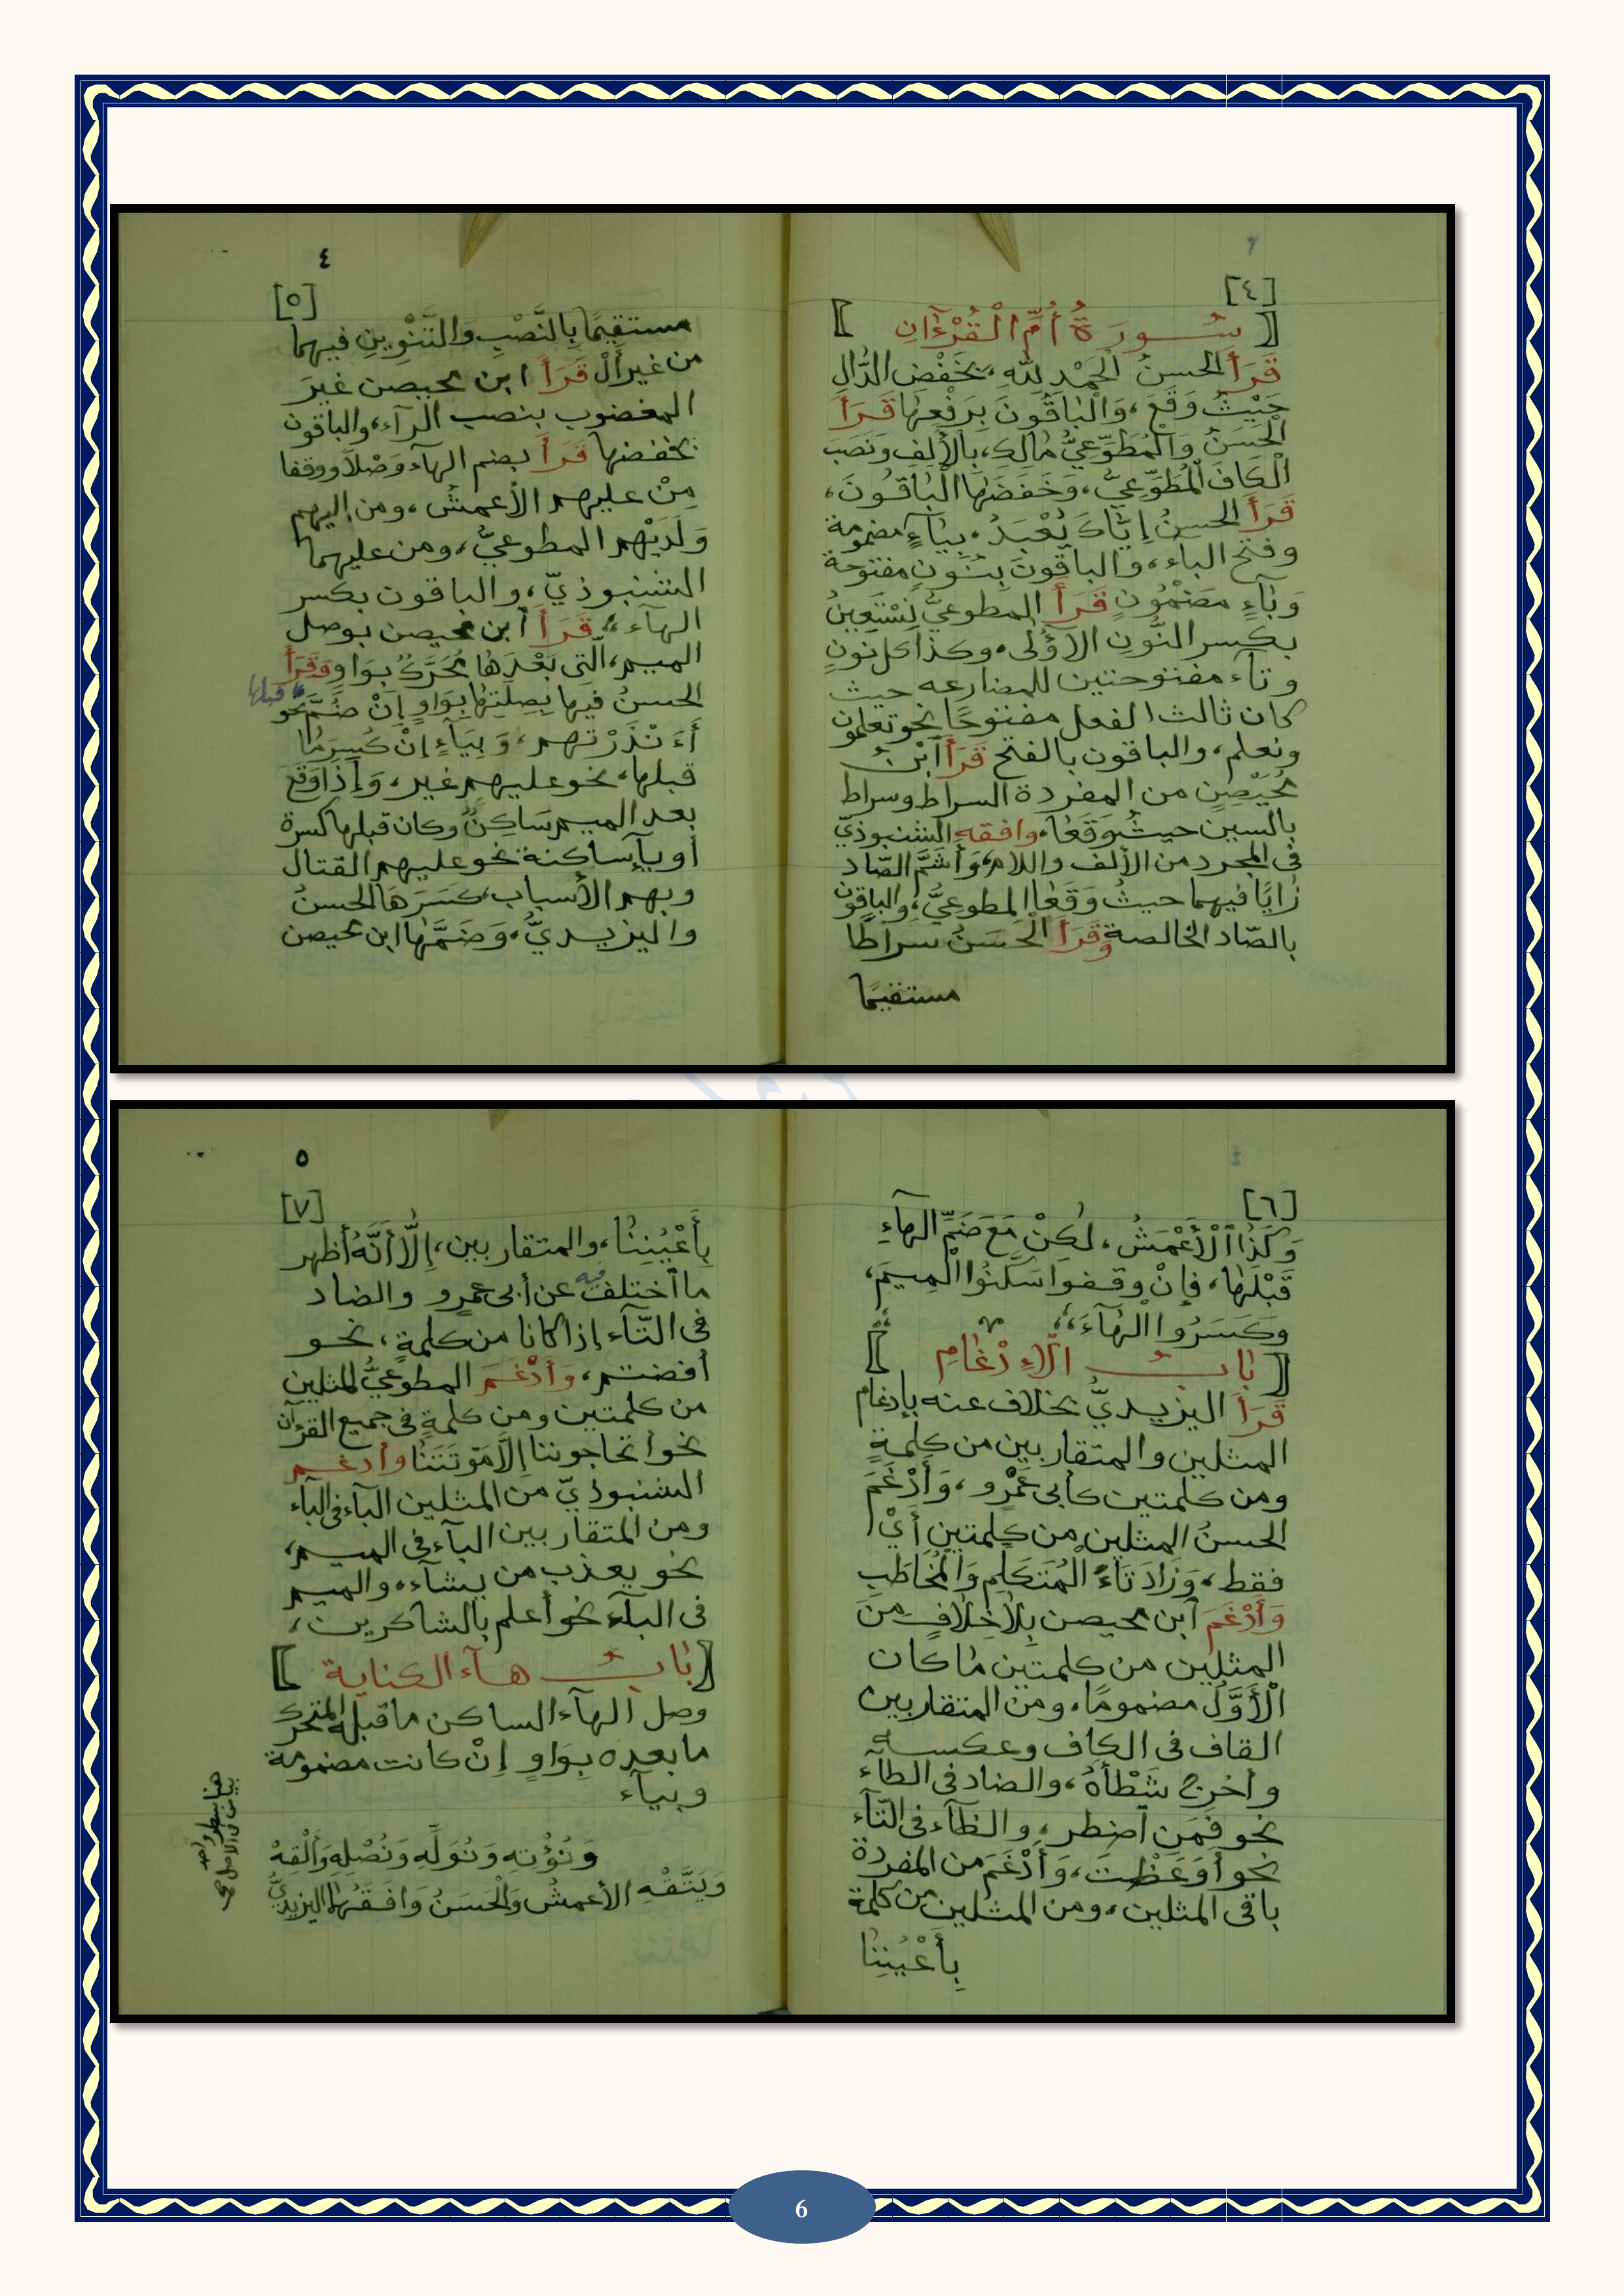 [٤]
[سُورَةُ أُمِّ الْقُرْءَانِ]
قَرَأَ الحسنُ الْحَمْدِ لِلَّهِ، بخَفْضِ الدَّالِ
حَيْثُ وَقَعَ، وَالْبَاقُونَ بِرَفْعِهَا قَرَأَ
الْحَسَنُ وَالْمُطَّوِّعِيُّ مَالِكِ، بِالأَلِفِ وَنَصَبَ
الْكَافَ الْمُطَّوِّعِيُّ، وَخَفَضَهَا الْبَاقُونَ،
قَرَأَ الحسنُ إِيَّاكَ يُعْبَدُ، بِيَاءٍ مضمومة
وفتح الباء، والباقُونَ بِنُونٍ مفتوحة
وَبَاءٍ مَضْمُونٍ قَرَأَ المطوعيُّ نِسْتَعِينُ
بكسر النُّونِ الأُولَى، وكذا كل نونٍ
وتآء مفتوحتين للمضارعه حيث
كان ثالث الفعل مفتوحًا نحو تعلمون
ونعلم، والباقون بالفتح قَرَأَ ابْنُ
مُحَيْصِنٍ من المفردة السراط وسراط
بالسين حيثُ وَقَعَا، وافقه الشنبوذيّ
فى المجرد من الألف واللام، وَأَشَمَّ الصَّاد
زَايًا فيهما حيثُ وَقَعَا المطوعِيُّ، والباقون
بالصّاد الخالصة وَقَرَأَ الْحَسَنُ سراطًا
مستقيمًا
٤
[٥]
مستقيمًا بِالنَّصْبِ وَالتَّنْوِينِ فيهما
من غير أَلْ قَرَأَ ابن محيصن غيرَ
المغضوب بنصب الرآء، والباقون
بخفضها قَرَأَ بضم الهآء وَصْلاً ووقفا
مِنْ عليهم الأعمشُ، ومن إليهم
وَلَدَيْهِم المطوعيُّ، ومن عليهما
الشنبوذيّ، والباقون بكسر
الهآء، قَرَأَ ابن محيصن بوصل
الميم، الّتى بَعْدَهَا مُحَرَّكٌ بِوَاوٍ وَقَرَأَ
الحسنُ فيها بِصِلَتِهَا بِوَاوٍ إِنْ ضُمَّ نحو
قبلها
أَءَنْذَرْتَهم، وَبِيَآءٍ إِنْ كُسِرَ مَا
قبلها، نحو عليهم غير، وَإِذَا وَقَعَ
بعد الميم سَاكِنٌ وكان قبلها كسرة
أو يآء ساكنة نحو عليهم القتال
وبهم الأسباب، كَسَرَهَا الحسنُ
واليزيديُّ، وَضَمَّهَا ابن محيصن
[٦]
وَكَذَا الْأَعْمَشُ، لَكِنْ مَعَ ضَمِّ الهآءِ
قَبْلَهَا، فإِنْ وقفوا سَكَّنُوا الْمِيمَ،
وَكَسَرُوا الْهَآءَ،
[بَابُ الْإِدْغَامِ]
قَرَأَ اليزيديُّ بخلاف عنه بإدغام
المثلين والمتقاربين من كلمةٍ
ومن كلمتين كأبى عَمْرٍو، وَأَدْغَمَ
الحسنُ المثلين من كلمتين أَيْ
فقط، وَزَادَ تَاءَ الْمُتَكَلِّمِ وَالْمُخَاطَبِ
وَأَدْغَمَ ابن محيصن بِلَاخِلَافٍ مِنَ
المثلين من كلمتين مَا كان
الْأَوَّلُ مضمومًا، ومن المتقاربين
القاف فى الكاف وعكسه
وأخرج شَطْأَهُ، والضاد فى الطآء
نحو فَمَنِ اضطر، والظآء فى التآء
نحو أَوَعَظْتَ، وَأَدْغَمَ من المفردة
باقى المثلين، ومن المثلين من كلمة
بِأَعْيُنِنَا
٥
[٧]
بِأَعْيُنِنَا، والمتقاربين، إِلَّا أَنَّهُ أظهر
ما اختلف فيه عن أبى عمرٍو والضاد
فى التّآء إذا كانا من كلمةٍ، نحو
أفضتم، وَأَدْغَمَ المطوعيُّ المثلين
من كلمتين ومن كلمةٍ فى جميع القرءآن
نحو أتحاجوننا إِلَّا مَوْتَتَنَا وأدغم
الشنبوذيّ من المثلين البآء فى البآء
ومن المتقاربين البآء فى الميم،
نحو يعذب من يشآء، والميم
فى البآء نحو أعلم بالشاكرين،
[بَابُ هآء الكناية]
وصل الهآء الساكن ما قبله المتحرك
ما بعده بِوَاوٍ إِنْ كانت مضمومة
وبيآء
وَنُؤْتِهِ وَنُوَلِّهِ وَنُصْلِهِ وَأَلْقِهْ
وَيَتَّقْهِ الأعمشُ وَالْحَسَنُ وَافَقَهُمَا اليزيديُّ
6